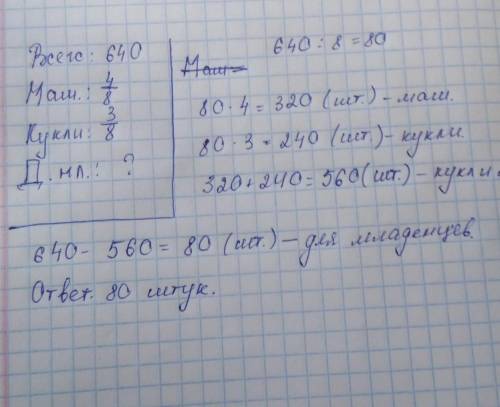 Всего: 640
Маш.: 4/8
Кукли: 3/8
Д. мл.: ?
Маш –
640 : 8 = 80
80 · 4 = 320 (шт.) – маш.
80 · 3 = 240 (шт.) – кукли.
320 + 240 = 560 (шт.) – кукли
640 – 560 = 80 (шт.) – для младенцев.
Ответ. 80 штук.